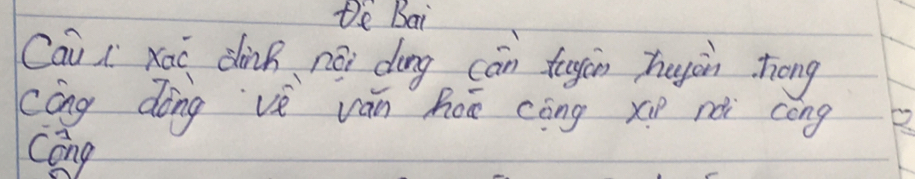 Đề Bài
Câu 1: xác định nội dung cần tuyên truyền trong
cộng đồng về văn hoá công xử nơi công
cộng